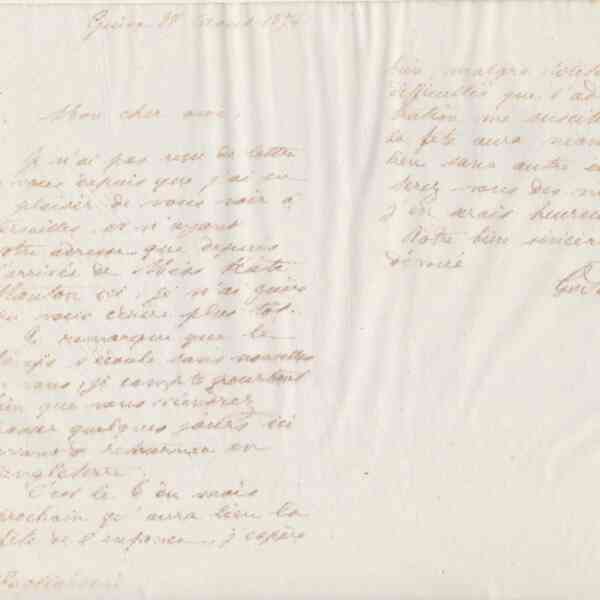 Guise 28 Aout 1874
Mon cher ami,
Je n'ai pas reçu de lettre
vous depuis que j'ai eu
plaisir de vous voir à
ersailles, et n'ayant
otre adresse que depuis
'arrivée de Miss
ici, je n'ai guère
vous écrire plus tôt.
Je remarque que le
s'écoule sans nouvelles
vous, je compte pourtant
ien que vous viendrez
passer quelques jours ici
avant de retourner en
Angleterre.
C'est le 6 du mois
prochain qu'aura lieu la
fête de l'enfance, j'espère
bien, malgré toutes
difficultés que l'ad
tration me suscite
la fête aura néan
lieu sans autre
Serez vous des
J'en serais heureu
Votre bien sincère
dévoué
God